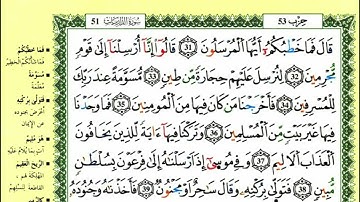 حزب 53
سورة الذاريات 51
قَالَ فَمَا خَطْبُكُمْ أَيُّهَا الْمُرْسَلُونَ 31 قَالُوا إِنَّا أُرْسِلْنَا إِلَى قَوْمٍ
مُّجْرِمِينَ 32 لِنُرْسِلَ عَلَيْهِمْ حِجَارَةً مِّن طِينٍ 33 مُّسَوَّمَةً عِندَ رَبِّكَ
لِلْمُسْرِفِينَ 34 فَأَخْرَجْنَا مَن كَانَ فِيهَا مِنَ الْمُؤْمِنِينَ 35 فَمَا وَجَدْنَا
فِيهَا غَيْرَ بَيْتٍ مِّنَ الْمُسْلِمِينَ 36 وَتَرَكْنَا فِيهَا ءَايَةً لِّلَّذِينَ يَخَافُونَ
الْعَذَابَ الْأَلِيمَ 37 وَفِي مُوسَى إِذْ أَرْسَلْنَاهُ إِلَى فِرْعَوْنَ بِسُلْطَانٍ
مُّبِينٍ 38 فَتَوَلَّى بِرُكْنِهِ وَقَالَ سَاحِرٌ أَوْ مَجْنُونٌ 39 فَأَخَذْنَاهُ وَجُنُودَهُ
فَمَا خَطْبُكُمْ
مُسَوَّمَةً
فَتَوَلَّى بِرُكْنِهِ
عن الإيمان
هو مليم
الريح العقيم